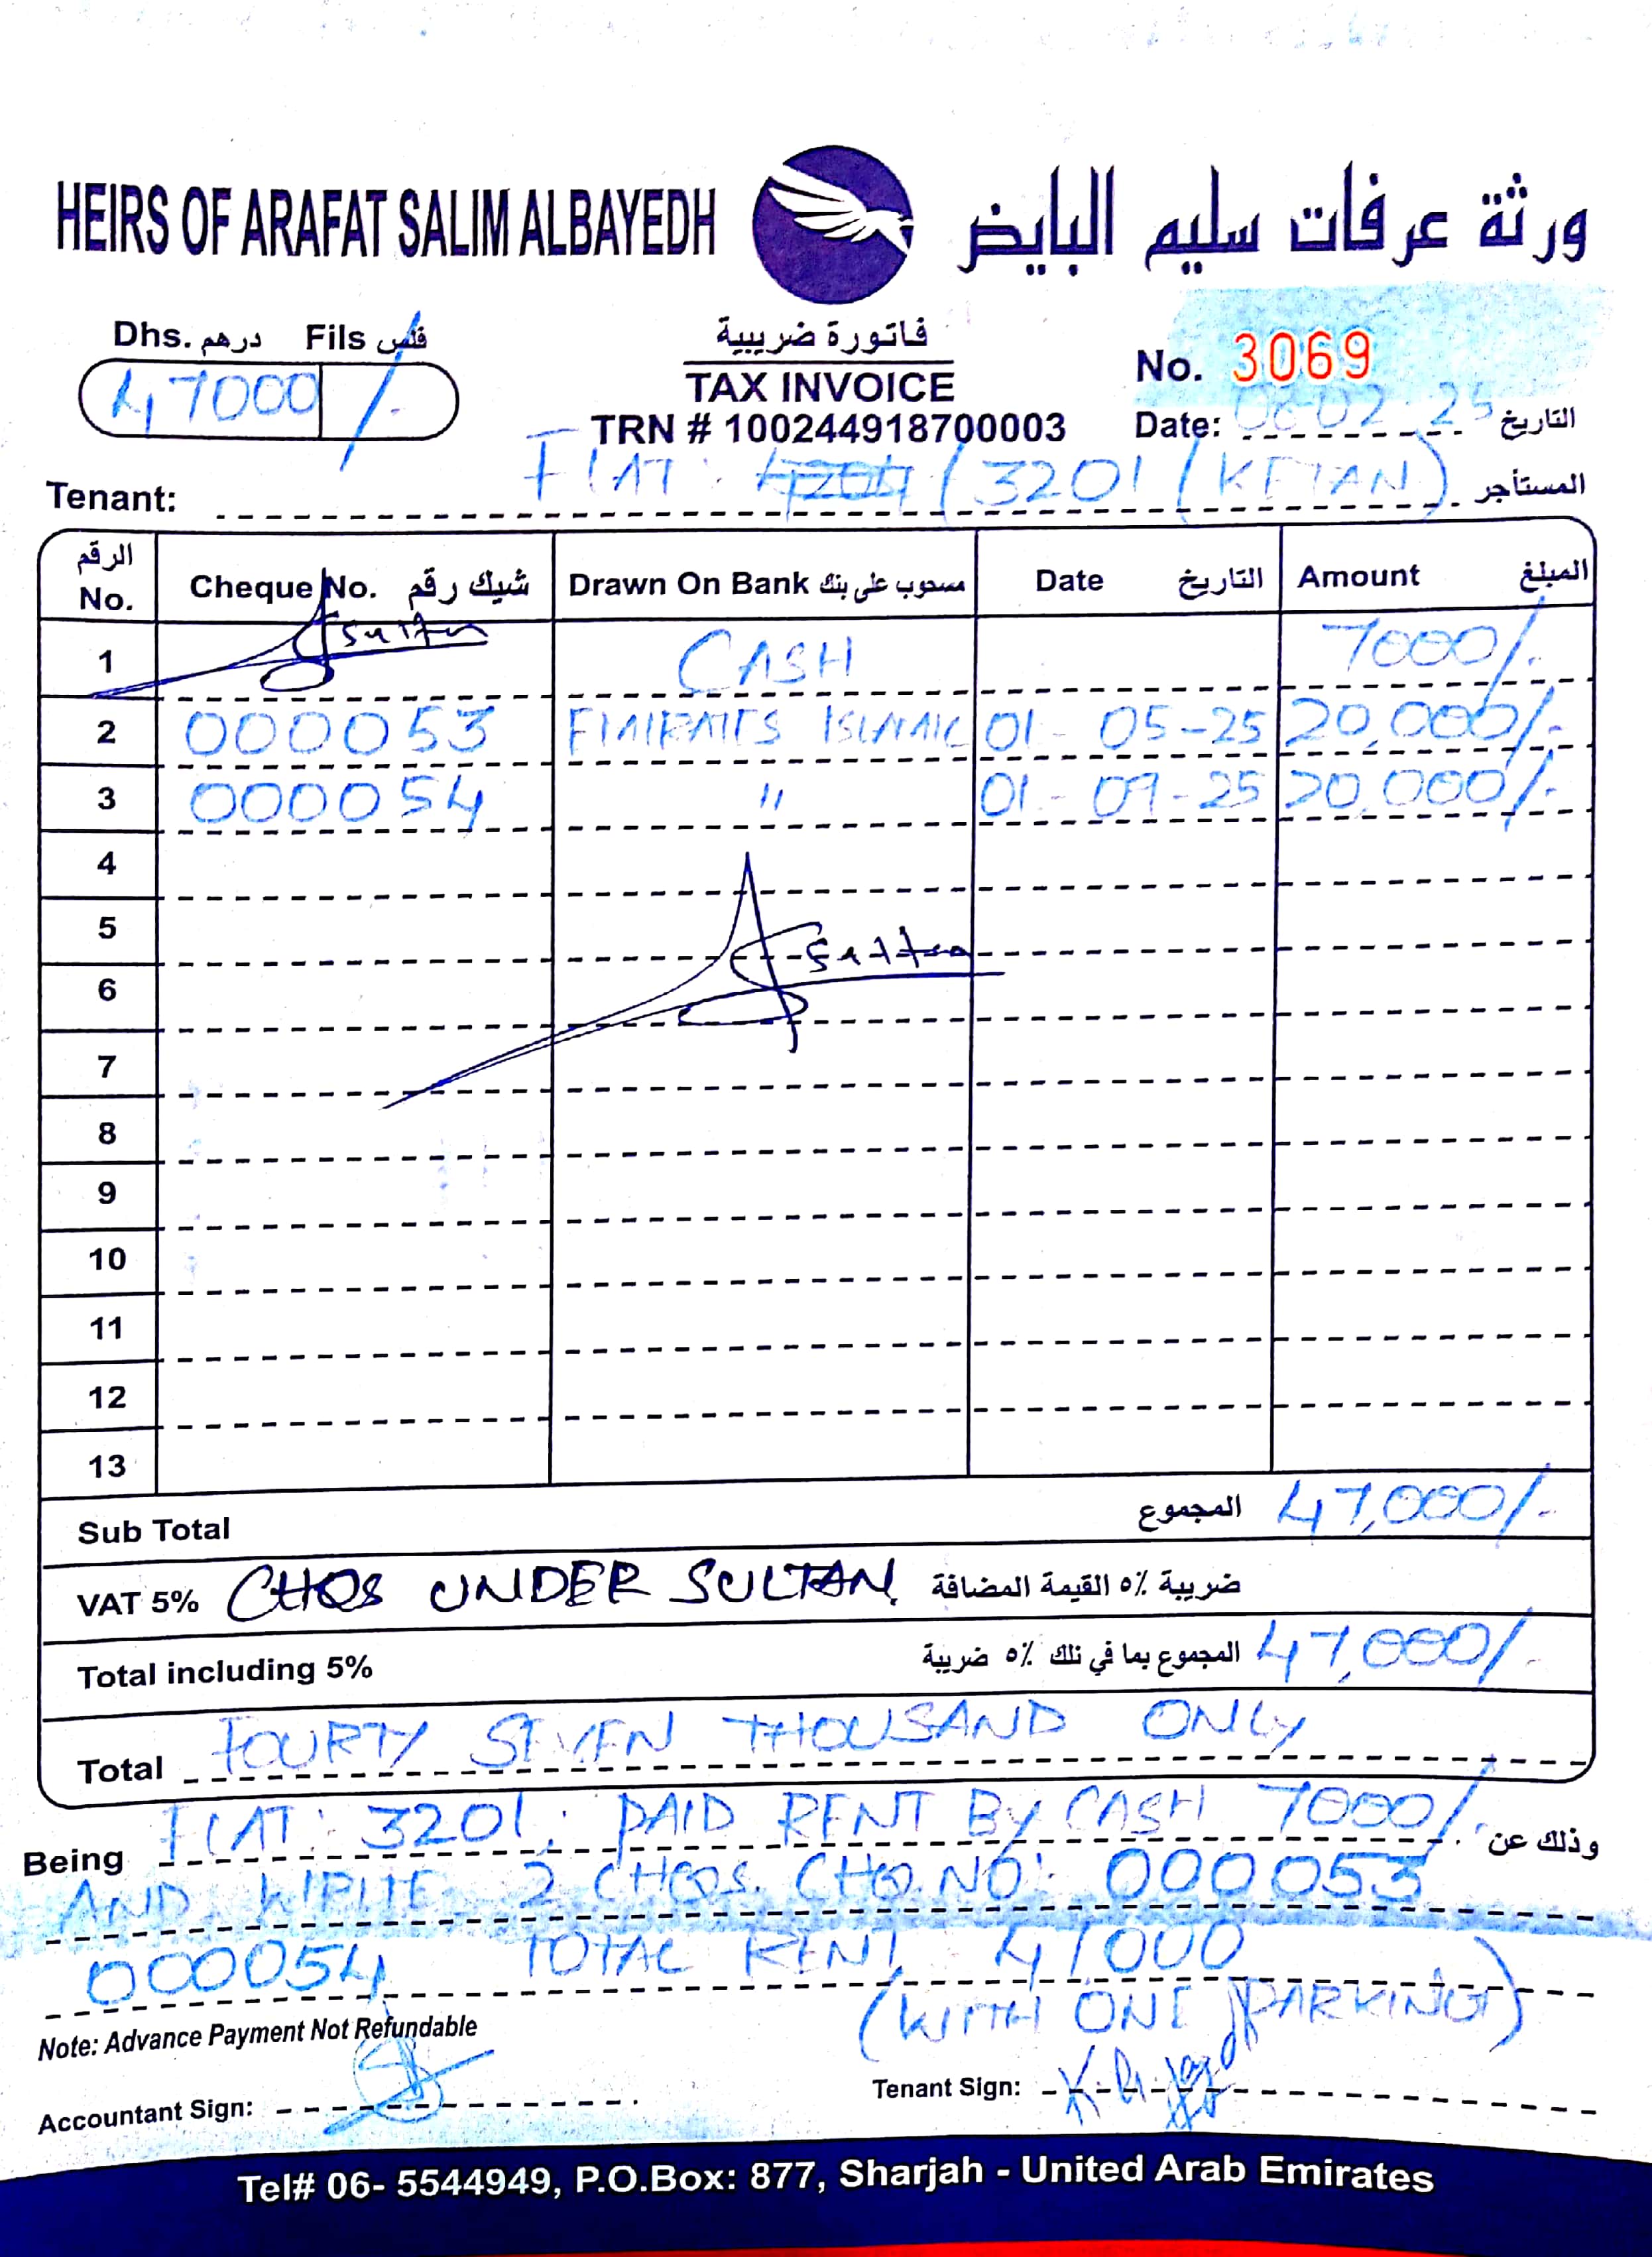 HEIRS OF ARAFAT SALIM ALBAYEDH ورثة عرفات سليم البايض
Dhs. درهم Fils فلس
47000 /-
فاتورة ضريبية
TAX INVOICE
TRN # 100244918700003
No. 3069
Date: 06-02-25 التاريخ
Tenant: FLAT: 3201 (KETAN) المستأجر
الرقم No. Cheque No. شيك رقم Drawn On Bank مسحوب على بنك Date التاريخ Amount المبلغ
1 Sultan CASH 7000/-
2 000053 EMIRATES ISLAMIC 01-05-25 20,000/-
3 000054 " 01-09-25 20,000/-
4
5 Sultan
6
7
8
9
10
11
12
13
Sub Total المجموع 47,000/-
VAT 5% CHQS UNDER SULTAN ضريبة ٥٪ القيمة المضافة
Total including 5% المجموع بما في ذلك ٥٪ ضريبة 47,000/-
Total FOURTY SEVEN THOUSAND ONLY
Being FLAT: 3201. PAID RENT BY CASH 7000/- وذلك عن
AND 2 CHQS. CHQ.NO: 000053
000054 TOTAL RENT 47000
(WITH ONE PARKING)
Note: Advance Payment Not Refundable
Accountant Sign:
Tenant Sign:
Tel# 06- 5544949, P.O.Box: 877, Sharjah - United Arab Emirates